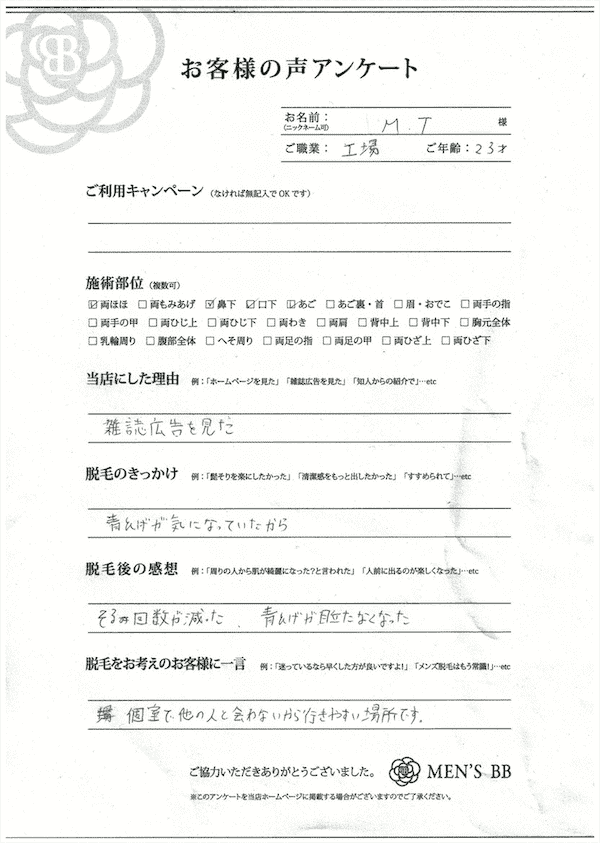 お客様の声アンケート
お名前：
(ニックネーム可)
M.T 様
ご職業： 工場 ご年齢：23才
ご利用キャンペーン （なければ無記入でOKです）
施術部位 （複数可）
☑両ほほ □両もみあげ ☑鼻下 ☑口下 ☑あご □あご裏・首 □眉・おでこ □両手の指
□両手の甲 □両ひじ上 □両ひじ下 □両わき □両肩 □背中上 □背中下 □胸元全体
□乳輪周り □腹部全体 □へそ周り □両足の指 □両足の甲 □両ひざ上 □両ひざ下
当店にした理由 例：「ホームページを見た」「雑誌広告を見た」「知人からの紹介で」…etc
雑誌広告を見た
脱毛のきっかけ 例：「髭そりを楽にしたかった」「清潔感をもっと出したかった」「すすめられて」…etc
青ひげが気になっていたから
脱毛後の感想 例：「周りの人から肌が綺麗になった?と言われた」「人前に出るのが楽しくなった」…etc
そる回数が減った. 青ひげが目立たなくなった
脱毛をお考えのお客様に一言 例：「迷っているなら早くした方が良いですよ!」「メンズ脱毛はもう常識!」…etc
個室で他の人と会わないから行きやすい場所です.
ご協力いただきありがとうございました。 MEN'S BB
※このアンケートを当店ホームページに掲載する場合がございますのでご了承ください。